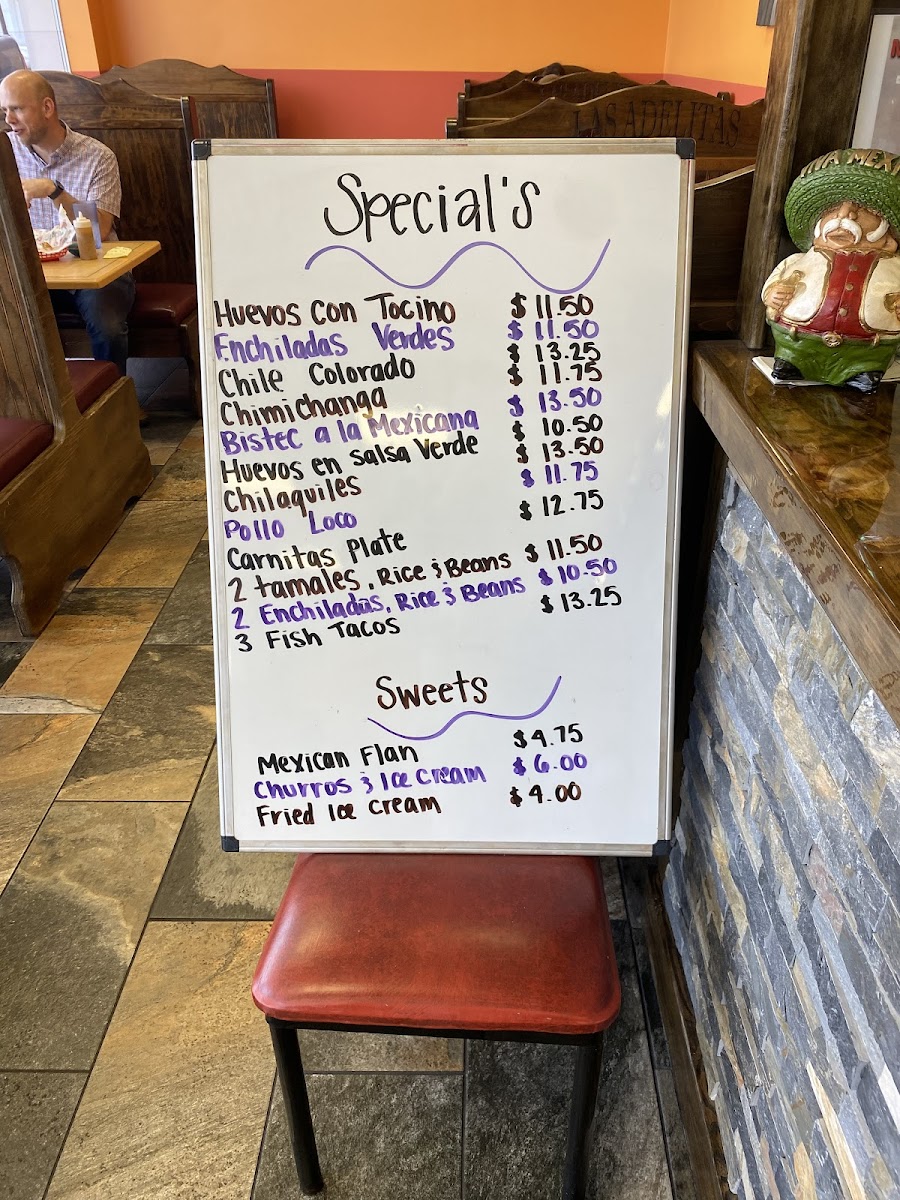 LAS ADELITAS
Special's
Huevos con Tocino $ 11.50
Enchiladas Verdes $ 11.50
Chile Colorado $ 13.25
Chimichanga $ 11.75
Bistec a la Mexicana $ 13.50
Huevos en salsa Verde $ 10.50
Chilaquiles $ 13.50
Pollo Loco $ 11.75
Carnitas Plate $ 12.75
2 tamales, Rice & Beans $ 11.50
2 Enchiladas, Rice & Beans $ 10.50
3 Fish Tacos $ 13.25
Sweets
Mexican Flan $4.75
Churros & Ice Cream $ 6.00
Fried Ice Cream $ 4.00